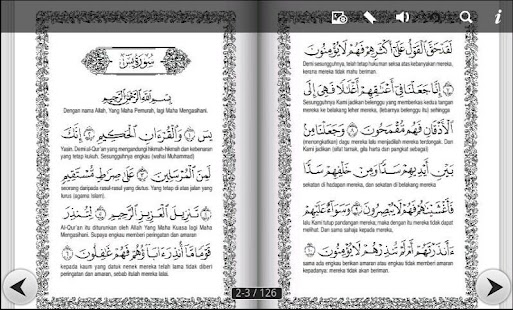 سورة يس
بسم الله الرحمن الرحيم
Dengan nama Allah, Yang Maha Pemurah, lagi Maha Mengasihani.
يس ۝١ والقرءان الحكيم ۝٢ إنك
Yasin. Demi al-Qur'an yang mengandungi hikmah-hikmah dan kebenaran
yang tetap kukuh. Sesungguhnya engkau (wahai Muhammad)
لمن المرسلين ۝٣ على صراط مستقيم ۝٤
seorang daripada rasul-rasul yang diutus. Yang tetap di atas jalan yang lurus
(agama islam).
تنزيل العزيز الرحيم ۝٥ لتنذر
Al-Qur'an itu diturunkan oleh Allah Yang Maha Kuasa lagi Maha
Mengasihani. Supaya engkau memberi peringatan dan amaran
قوما ما أنذر ءاباؤهم فهم غافلون ۝٦
kepada kaum yang datuk nenek mereka telah lama tidak diberi
peringatan dan amaran, sebab itulah mereka lalai.
لقد حق القول على أكثرهم فهم لا يؤمنون ۝٧
Demi sesungguhnya, telah tetap hukuman seksa atas kebanyakan mereka,
kerana mereka tidak mahu beriman.
إنا جعلنا في أعناقهم أغلالا فهي إلى
Sesungguhnya Kami jadikan belenggu yang memberkas kedua tangan
mereka ke batang leher mereka; lebarnya sampai (menongkatkan)
الأذقان فهم مقمحون ۝٨ وجعلنا من
(menongkatkan) dagu mereka lalu menjadilah mereka terdongak. Dan
Kami jadikan (sifat tamak, gila harta dan pangkat) sebagai
بين أيديهم سدا ومن خلفهم سدا
sekatan di hadapan mereka, dan sekatan di belakang mereka
فأغشيناهم فهم لا يبصرون ۝٩ وسواء عليهم
ءأنذرتهم أم لم تنذرهم لا يؤمنون ۝١٠
sama ada engkau beri amaran atau engkau tidak memberi amaran
kepadanya: mereka tidak akan beriman.
2-3 / 126